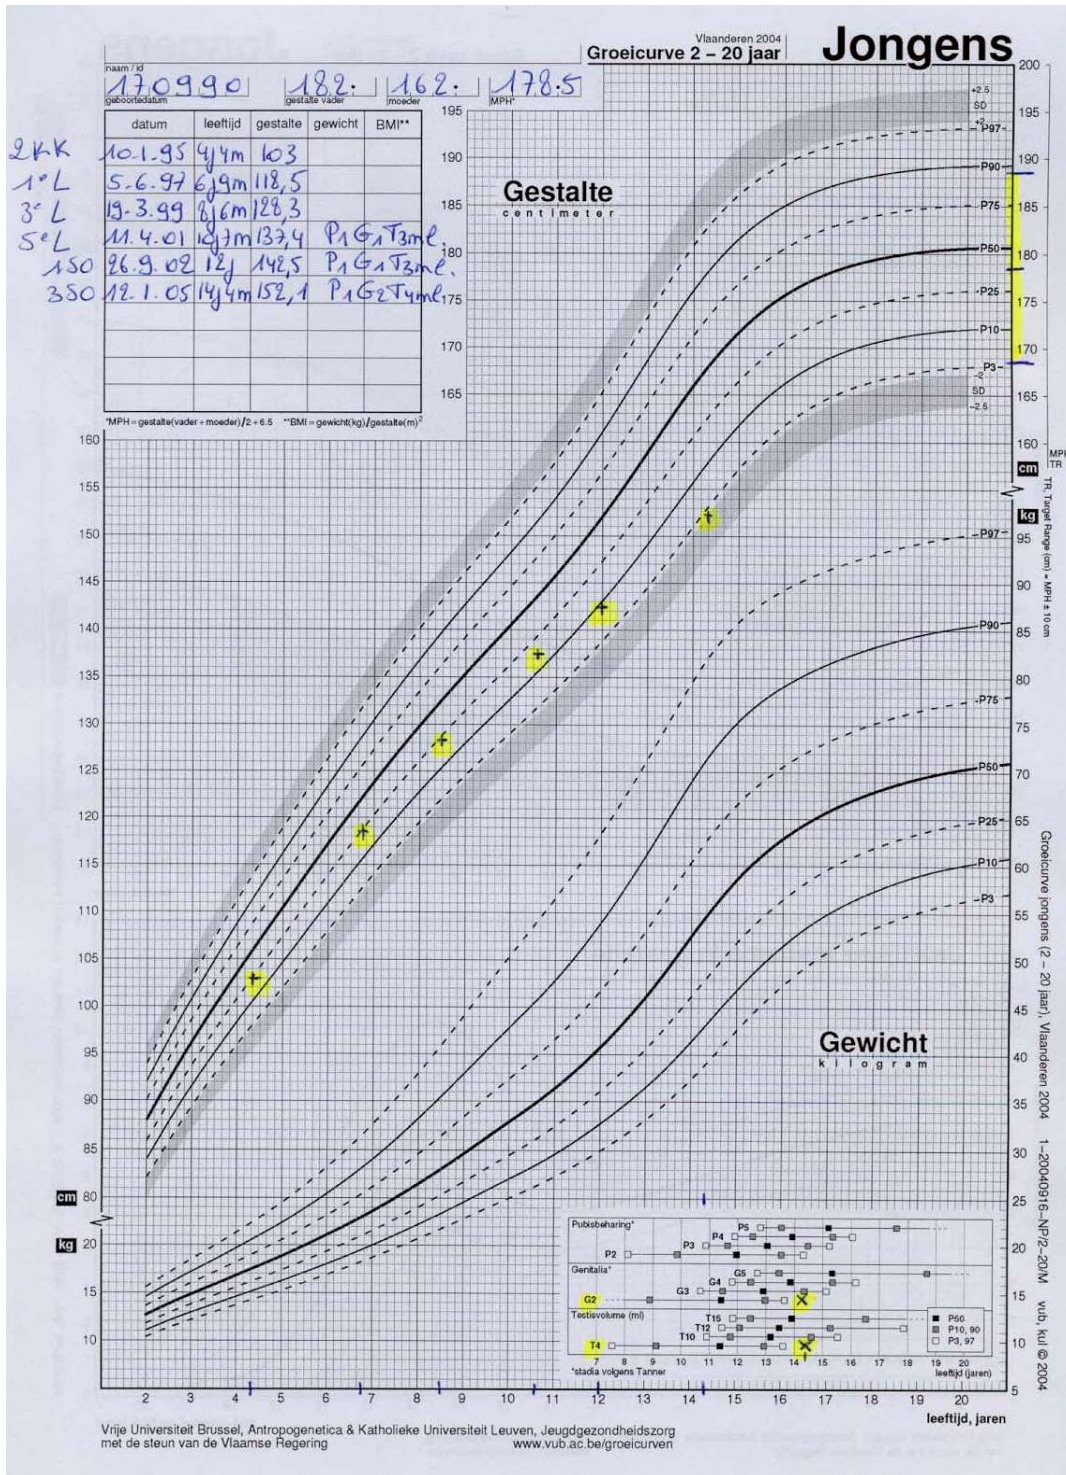 Vlaanderen 2004
Groeicurve 2 – 20 jaar
Jongens
naam / id
170990 182. 162. 178.5
geboortedatum gestalte vader moeder MPH*
datum leeftijd gestalte gewicht BMI**
2KK 10.1.95 4j4m 103
1°L 5.6.97 6j9m 118,5
3°L 19.3.99 8j6m 128,3
5°L 11.4.01 10j7m 137,4 P1G1T3ml.
1SO 26.9.02 12j 142,5 P1G1T3ml.
3SO 12.1.05 14j4m 152,1 P1G2T4ml.
*MPH = gestalte(vader + moeder)/2 + 6.5 **BMI = gewicht(kg)/gestalte(m)²
Gestalte
centimeter
200
195
190
185
180
175
170
165
160
155
150
145
140
135
130
125
120
115
110
105
100
95
90
85
80
cm
kg
20
15
10
+2.5
SD
+2
P97
P90
P75
P50
P25
P10
P3
-2
SD
-2.5
195
190
185
180
175
170
165
160
cm
MPH
TR
kg
TR, Target Range (cm) = MPH ± 10 cm
95
90
85
80
75
70
65
60
55
50
45
40
35
30
25
20
15
10
5
P97
P90
P75
P50
P25
P10
P3
Gewicht
kilogram
Groeicurve jongens (2 – 20 jaar), Vlaanderen 2004 1–20040916–NP/2–20/M vub, kul © 2004
Pubisbeharing*
P5
P4
P3
P2
Genitalia*
G5
G4
G3
G2
Testisvolume (ml)
T15
T12
T10
T4
P50
P10, 90
P3, 97
7 8 9 10 11 12 13 14 15 16 17 18 19 20
*stadia volgens Tanner leeftijd (jaren)
2 3 4 5 6 7 8 9 10 11 12 13 14 15 16 17 18 19 20
leeftijd, jaren
Vrije Universiteit Brussel, Antropogenetica & Katholieke Universiteit Leuven, Jeugdgezondheidszorg
met de steun van de Vlaamse Regering www.vub.ac.be/groeicurven